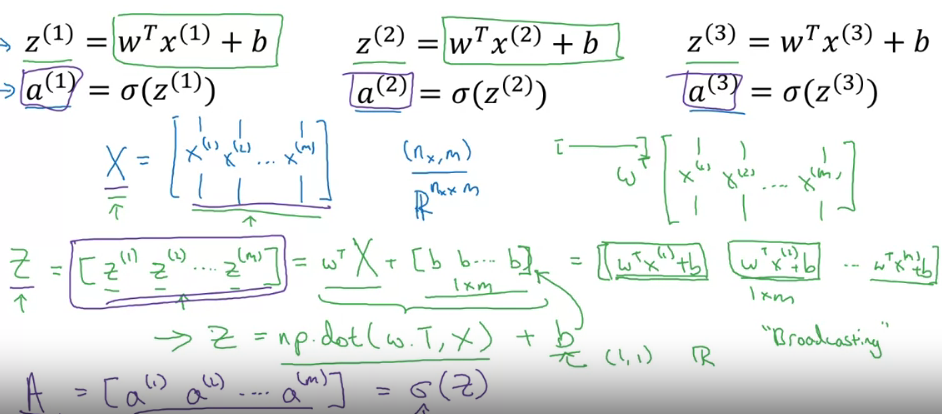 z^(1) = w^T x^(1) + b z^(2) = w^T x^(2) + b z^(3) = w^T x^(3) + b
a^(1) = σ(z^(1)) a^(2) = σ(z^(2)) a^(3) = σ(z^(3))
X = [x^(1) x^(2) ... x^(m)] (n_x, m) w^T [x^(1) x^(2) .... x^(m)]
ℝ^(n_x × m)
Z = [z^(1) z^(2) .... z^(m)] = w^T X + [b b ... b] = [w^T x^(1)+b w^T x^(2)+b ... w^T x^(m)+b]
1×m 1×m
→ Z = np.dot(w.T, X) + b (1,1) ℝ "Broadcasting"
A = [a^(1) a^(2) .... a^(m)] = σ(Z)